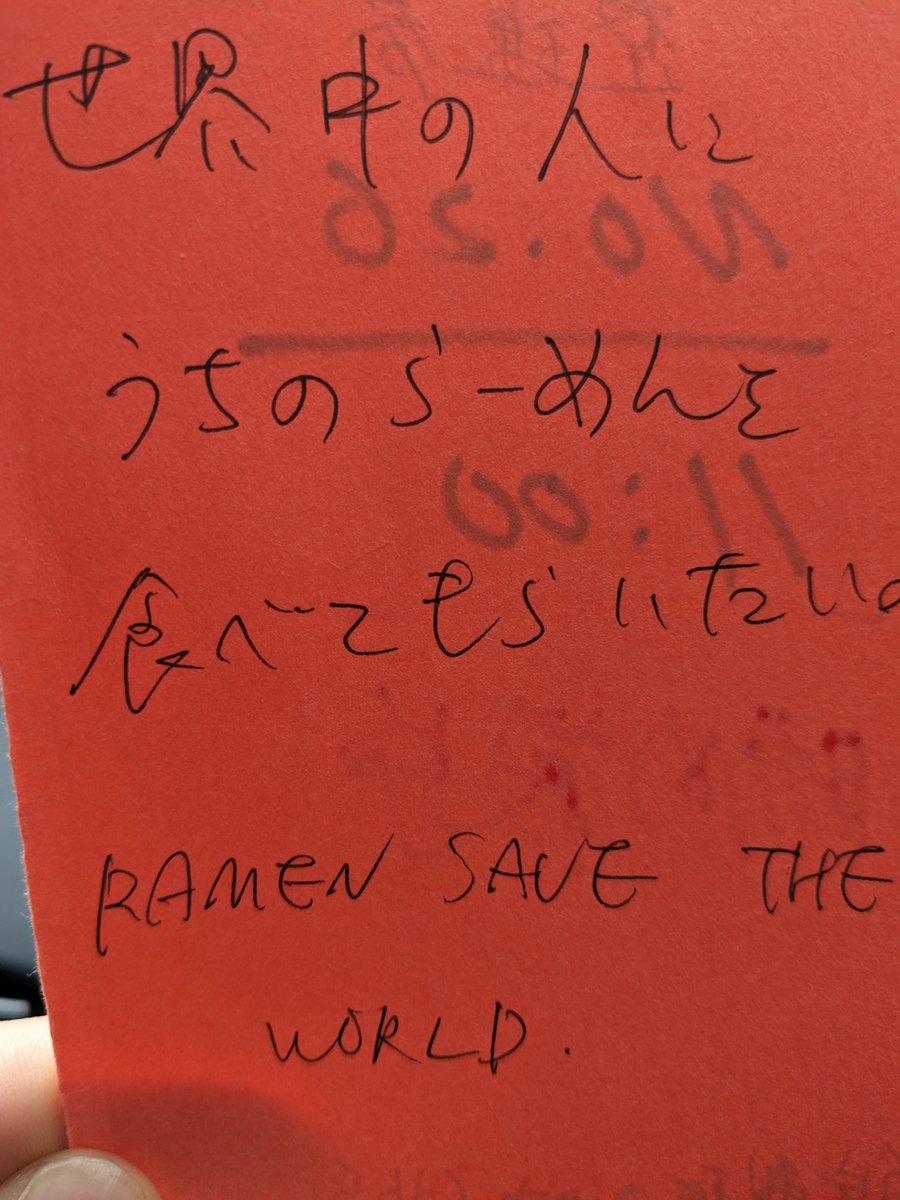 世界中の人に
うちのらーめんを
食べてもらいたい。
RAMEN SAVE THE
WORLD.
No.26
11:00